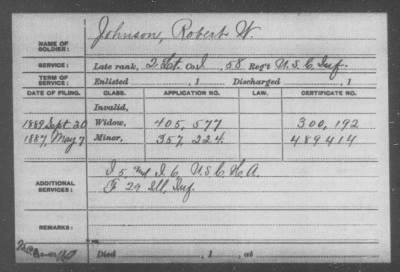 NAME OF SOLDIER: Johnson, Robert W.
SERVICE: Late rank, 2 Lt. Co. I, 58 Reg't U.S.C. Inf.
TERM OF SERVICE: Enlisted , 1 Discharged , 1
DATE OF FILING. CLASS. APPLICATION NO. LAW. CERTIFICATE NO.
Invalid,
1889 Sept 20 Widow, 405,577 300,192
1887, May 7 Minor, 357,224 489414
ADDITIONAL SERVICES: I 5 and I 6, U.S.C.H.A.
F 29 Ill. Inf.
REMARKS:
Died , 1 , at